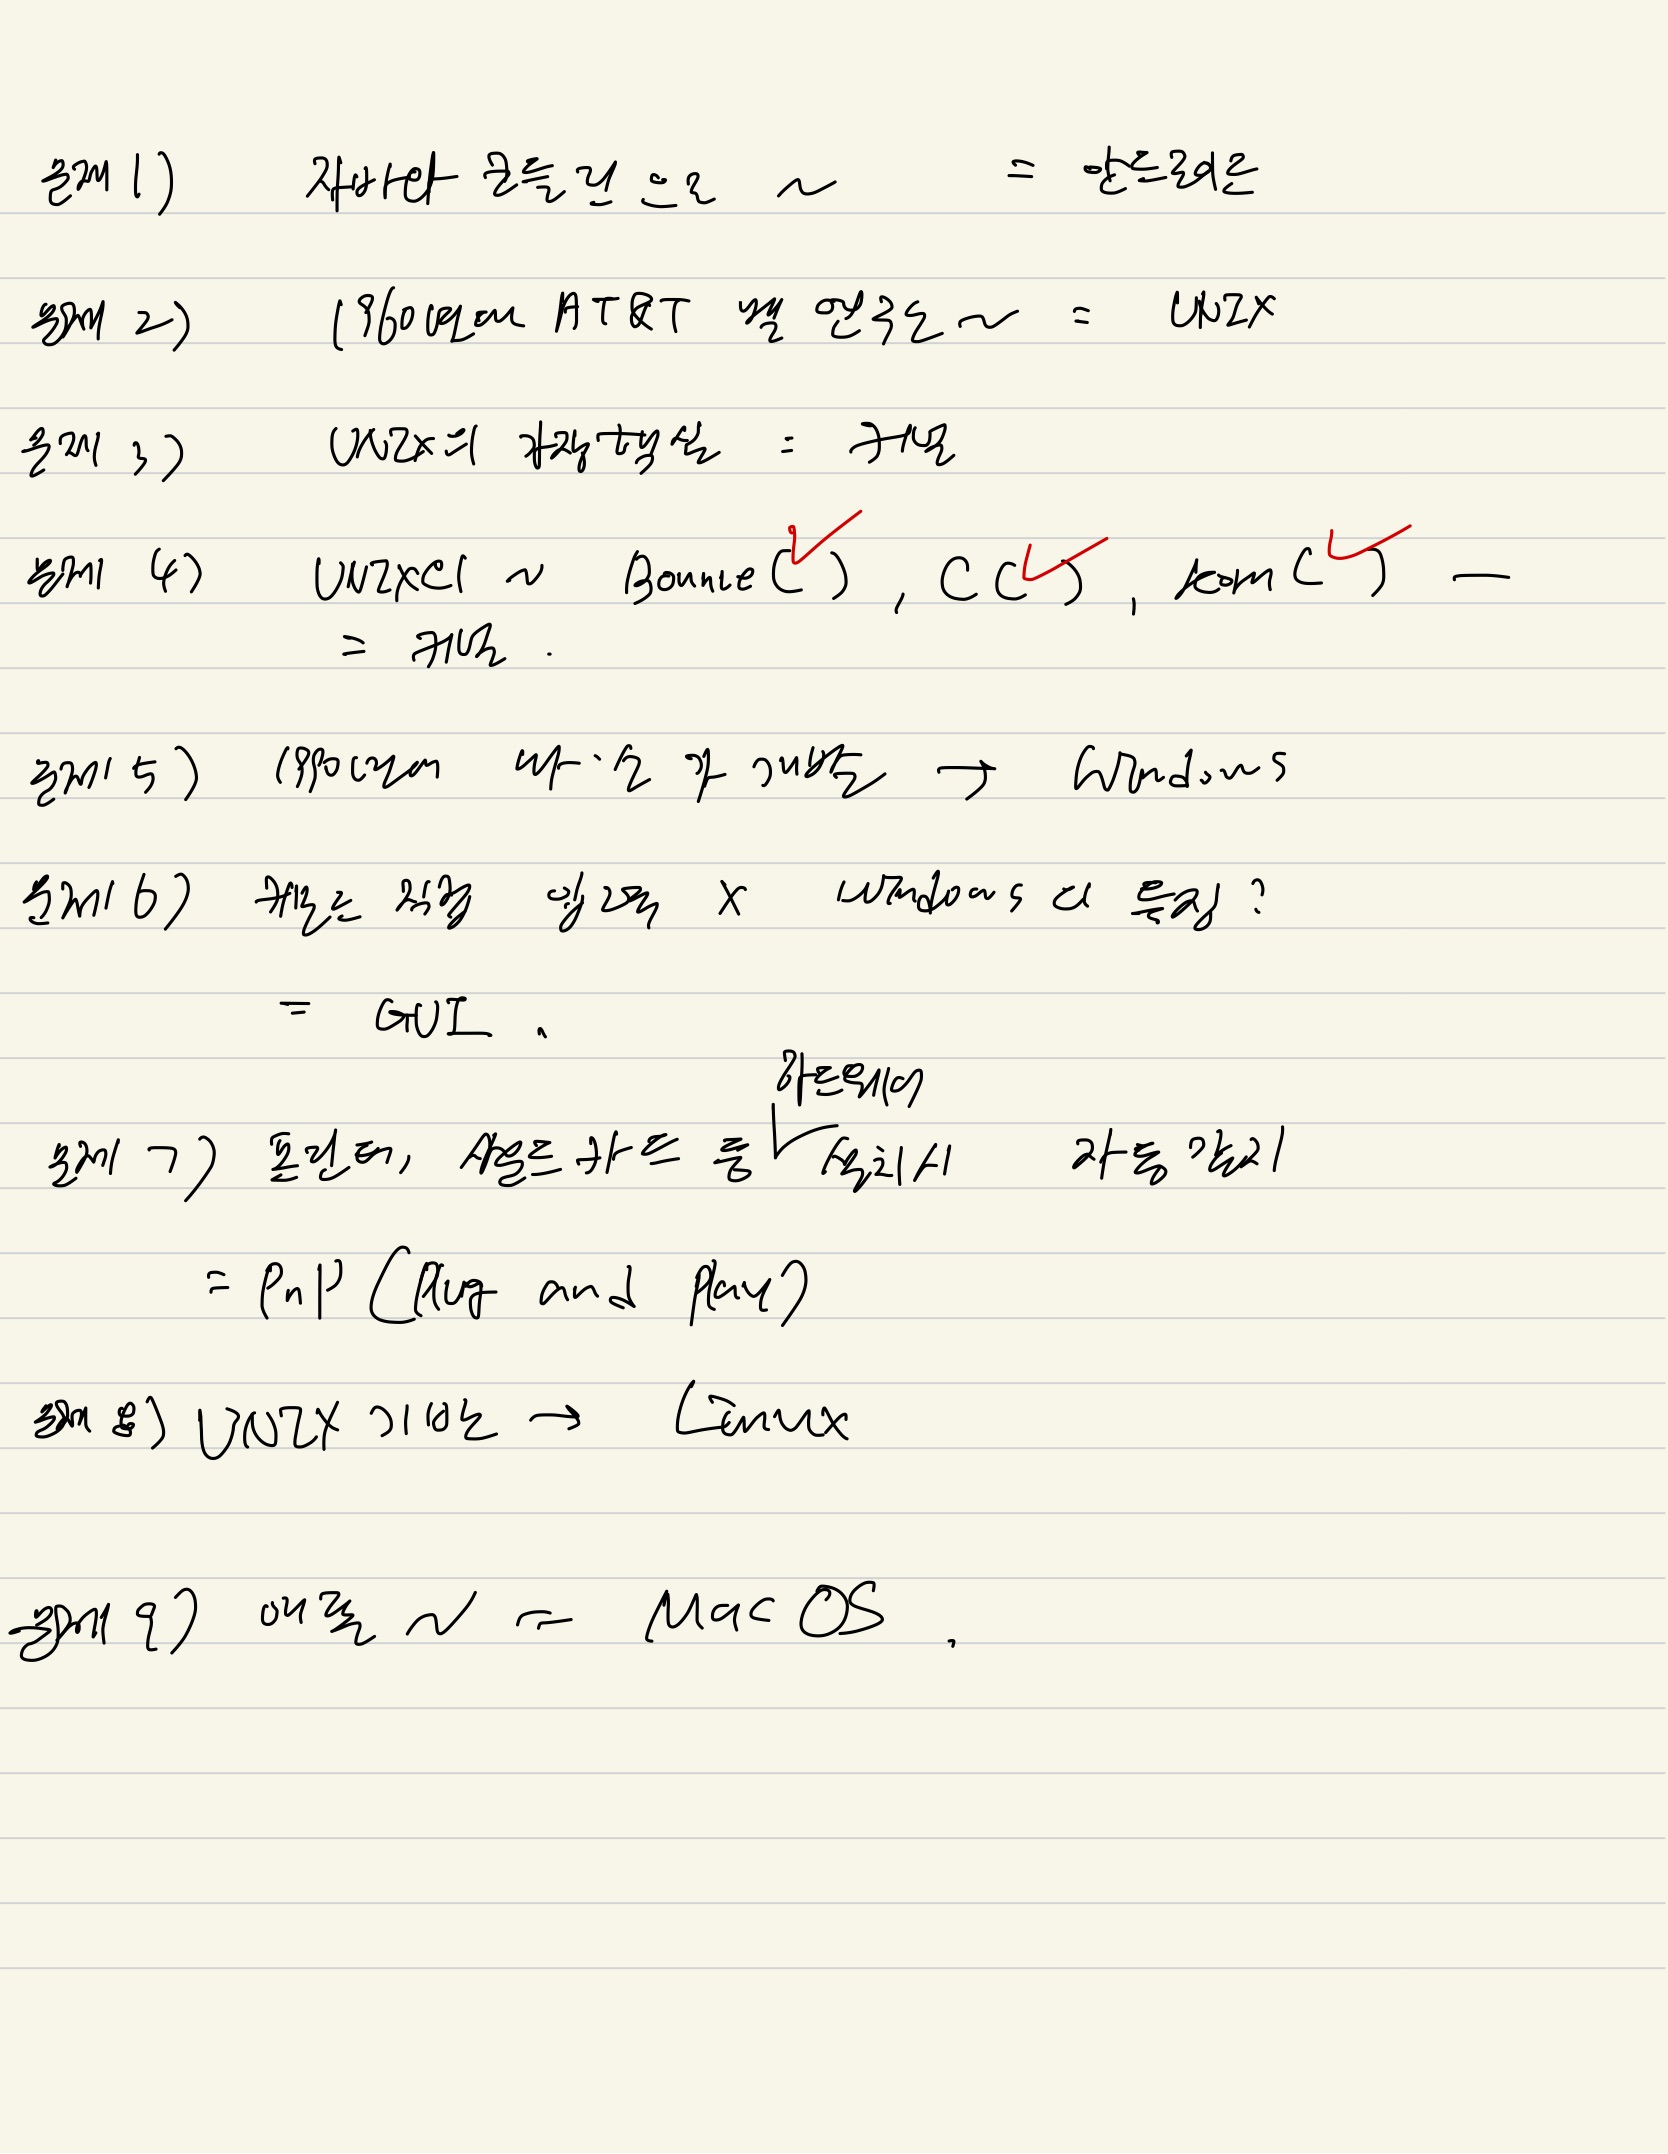 문제 1) 자바와 코틀린 으로 ~ = 안드로이드
문제 2) 1960년대 AT&T 벨 연구소 ~ = UNIX
문제 3) UNIX의 가장 핵심 = 커널
문제 4) UNIX의 ~ Bourne ( ), C ( ), korn ( ) —
= 커널 .
문제 5) 1990년대 마·소 가 개발 → Windows
문제 6) 키보드 직접 입력 X Windows 의 특징?
= GUI .
하드웨어
문제 7) 프린터, 사운드 카드 등 설치시 자동 감지
= PnP (Plug and Play)
문제 8) UNIX 기반 → Linux
문제 9) 애플 ~ = Mac OS .